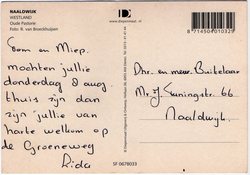 NAALDWIJK
WESTLAND
Oude Pastorie
Foto: R. van Broeckhuijzen
8 714500 010329
Com en Miep.
mochten jullie
donderdag 8 aug.
thuis zijn dan
zijn jullie van
harte welkom op
de Groeneweg
Rida
Dhr. en mevr. Buitelaar
Mr. J. Geuningstr. 66
Naaldwijk.
SF 0678033